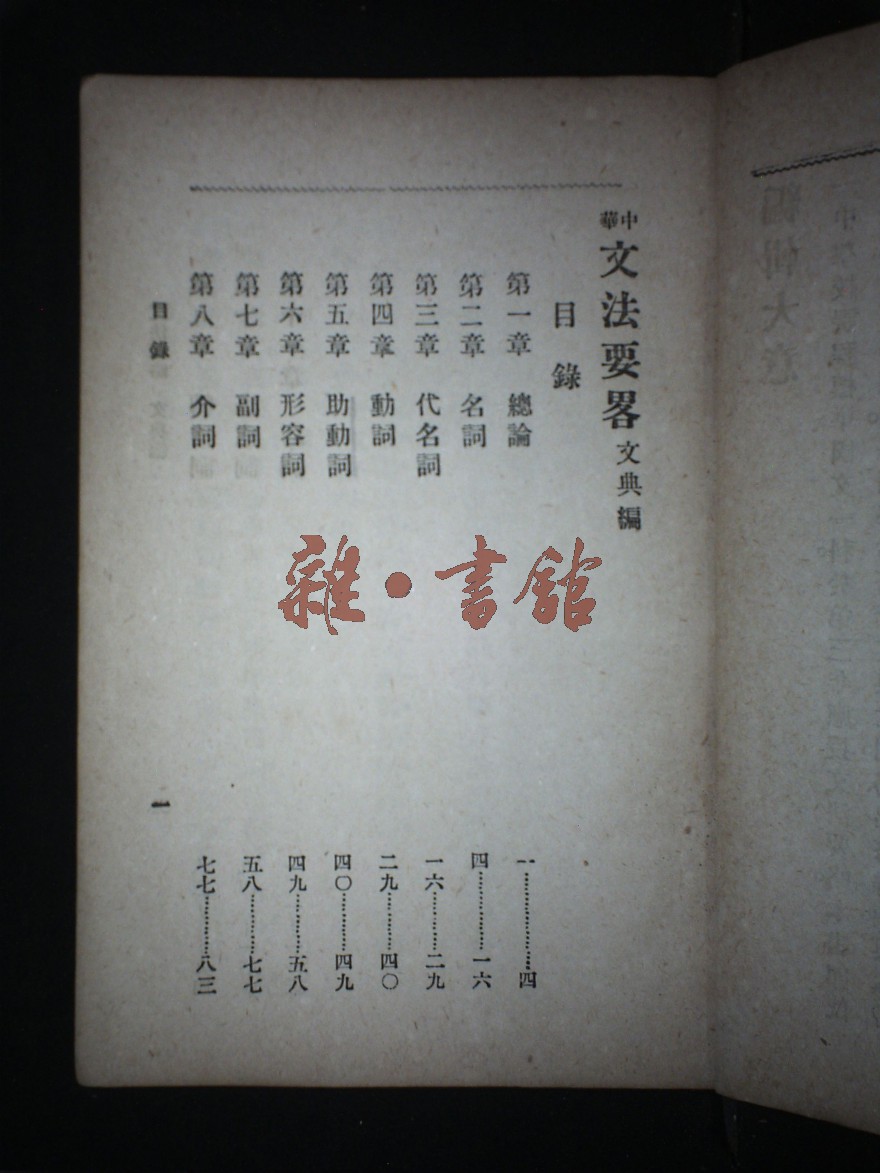 中華文法要畧文典編
目錄
第一章 總論 一……四
第二章 名詞 四……一六
第三章 代名詞 一六……二九
第四章 動詞 二九……四〇
第五章 助動詞 四〇……四九
第六章 形容詞 四九……五八
第七章 副詞 五八……七七
第八章 介詞 七七……八三
目錄 一
雜·書館